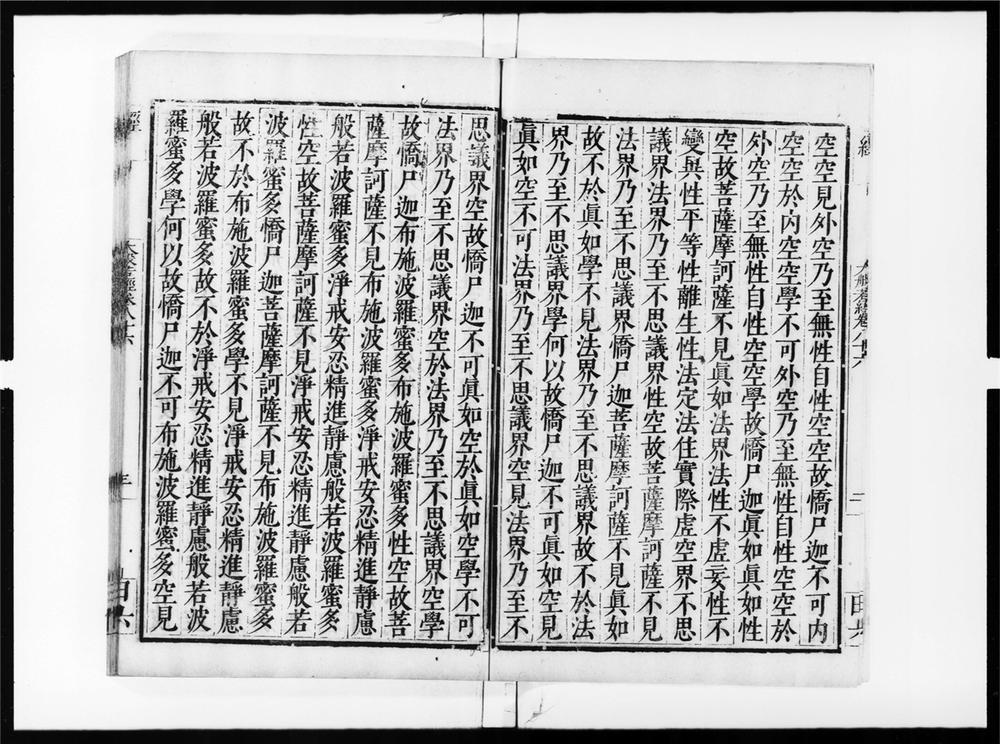 空空見外空乃至無性自性空空故憍尸迦不可內
空空於內空空學不可外空乃至無性自性空空於
外空乃至無性自性空空學故憍尸迦眞如眞如性
空故菩薩摩訶薩不見眞如法界法性不虛妄性不
變與性平等性離生性法定法住實際虛空界不思
議界法界乃至不思議界性空故菩薩摩訶薩不見
法界乃至不思議界憍尸迦菩薩摩訶薩不見眞如
故不於眞如學不見法界乃至不思議界故不於法
界乃至不思議界學何以故憍尸迦不可眞如空見
眞如空不可法界乃至不思議界空見法界乃至不
思議界空故憍尸迦不可眞如空於眞如空學不可
法界乃至不思議界空於法界乃至不思議界空學
故憍尸迦布施波羅蜜多布施波羅蜜多性空故菩
薩摩訶薩不見布施波羅蜜多淨戒安忍精進靜慮
般若波羅蜜多淨戒安忍精進靜慮般若波羅蜜多
性空故菩薩摩訶薩不見淨戒安忍精進靜慮般若
波羅蜜多憍尸迦菩薩摩訶薩不見布施波羅蜜多
故不於布施波羅蜜多學不見淨戒安忍精進靜慮
般若波羅蜜多故不於淨戒安忍精進靜慮般若波
羅蜜多學何以故憍尸迦不可布施波羅蜜多空見